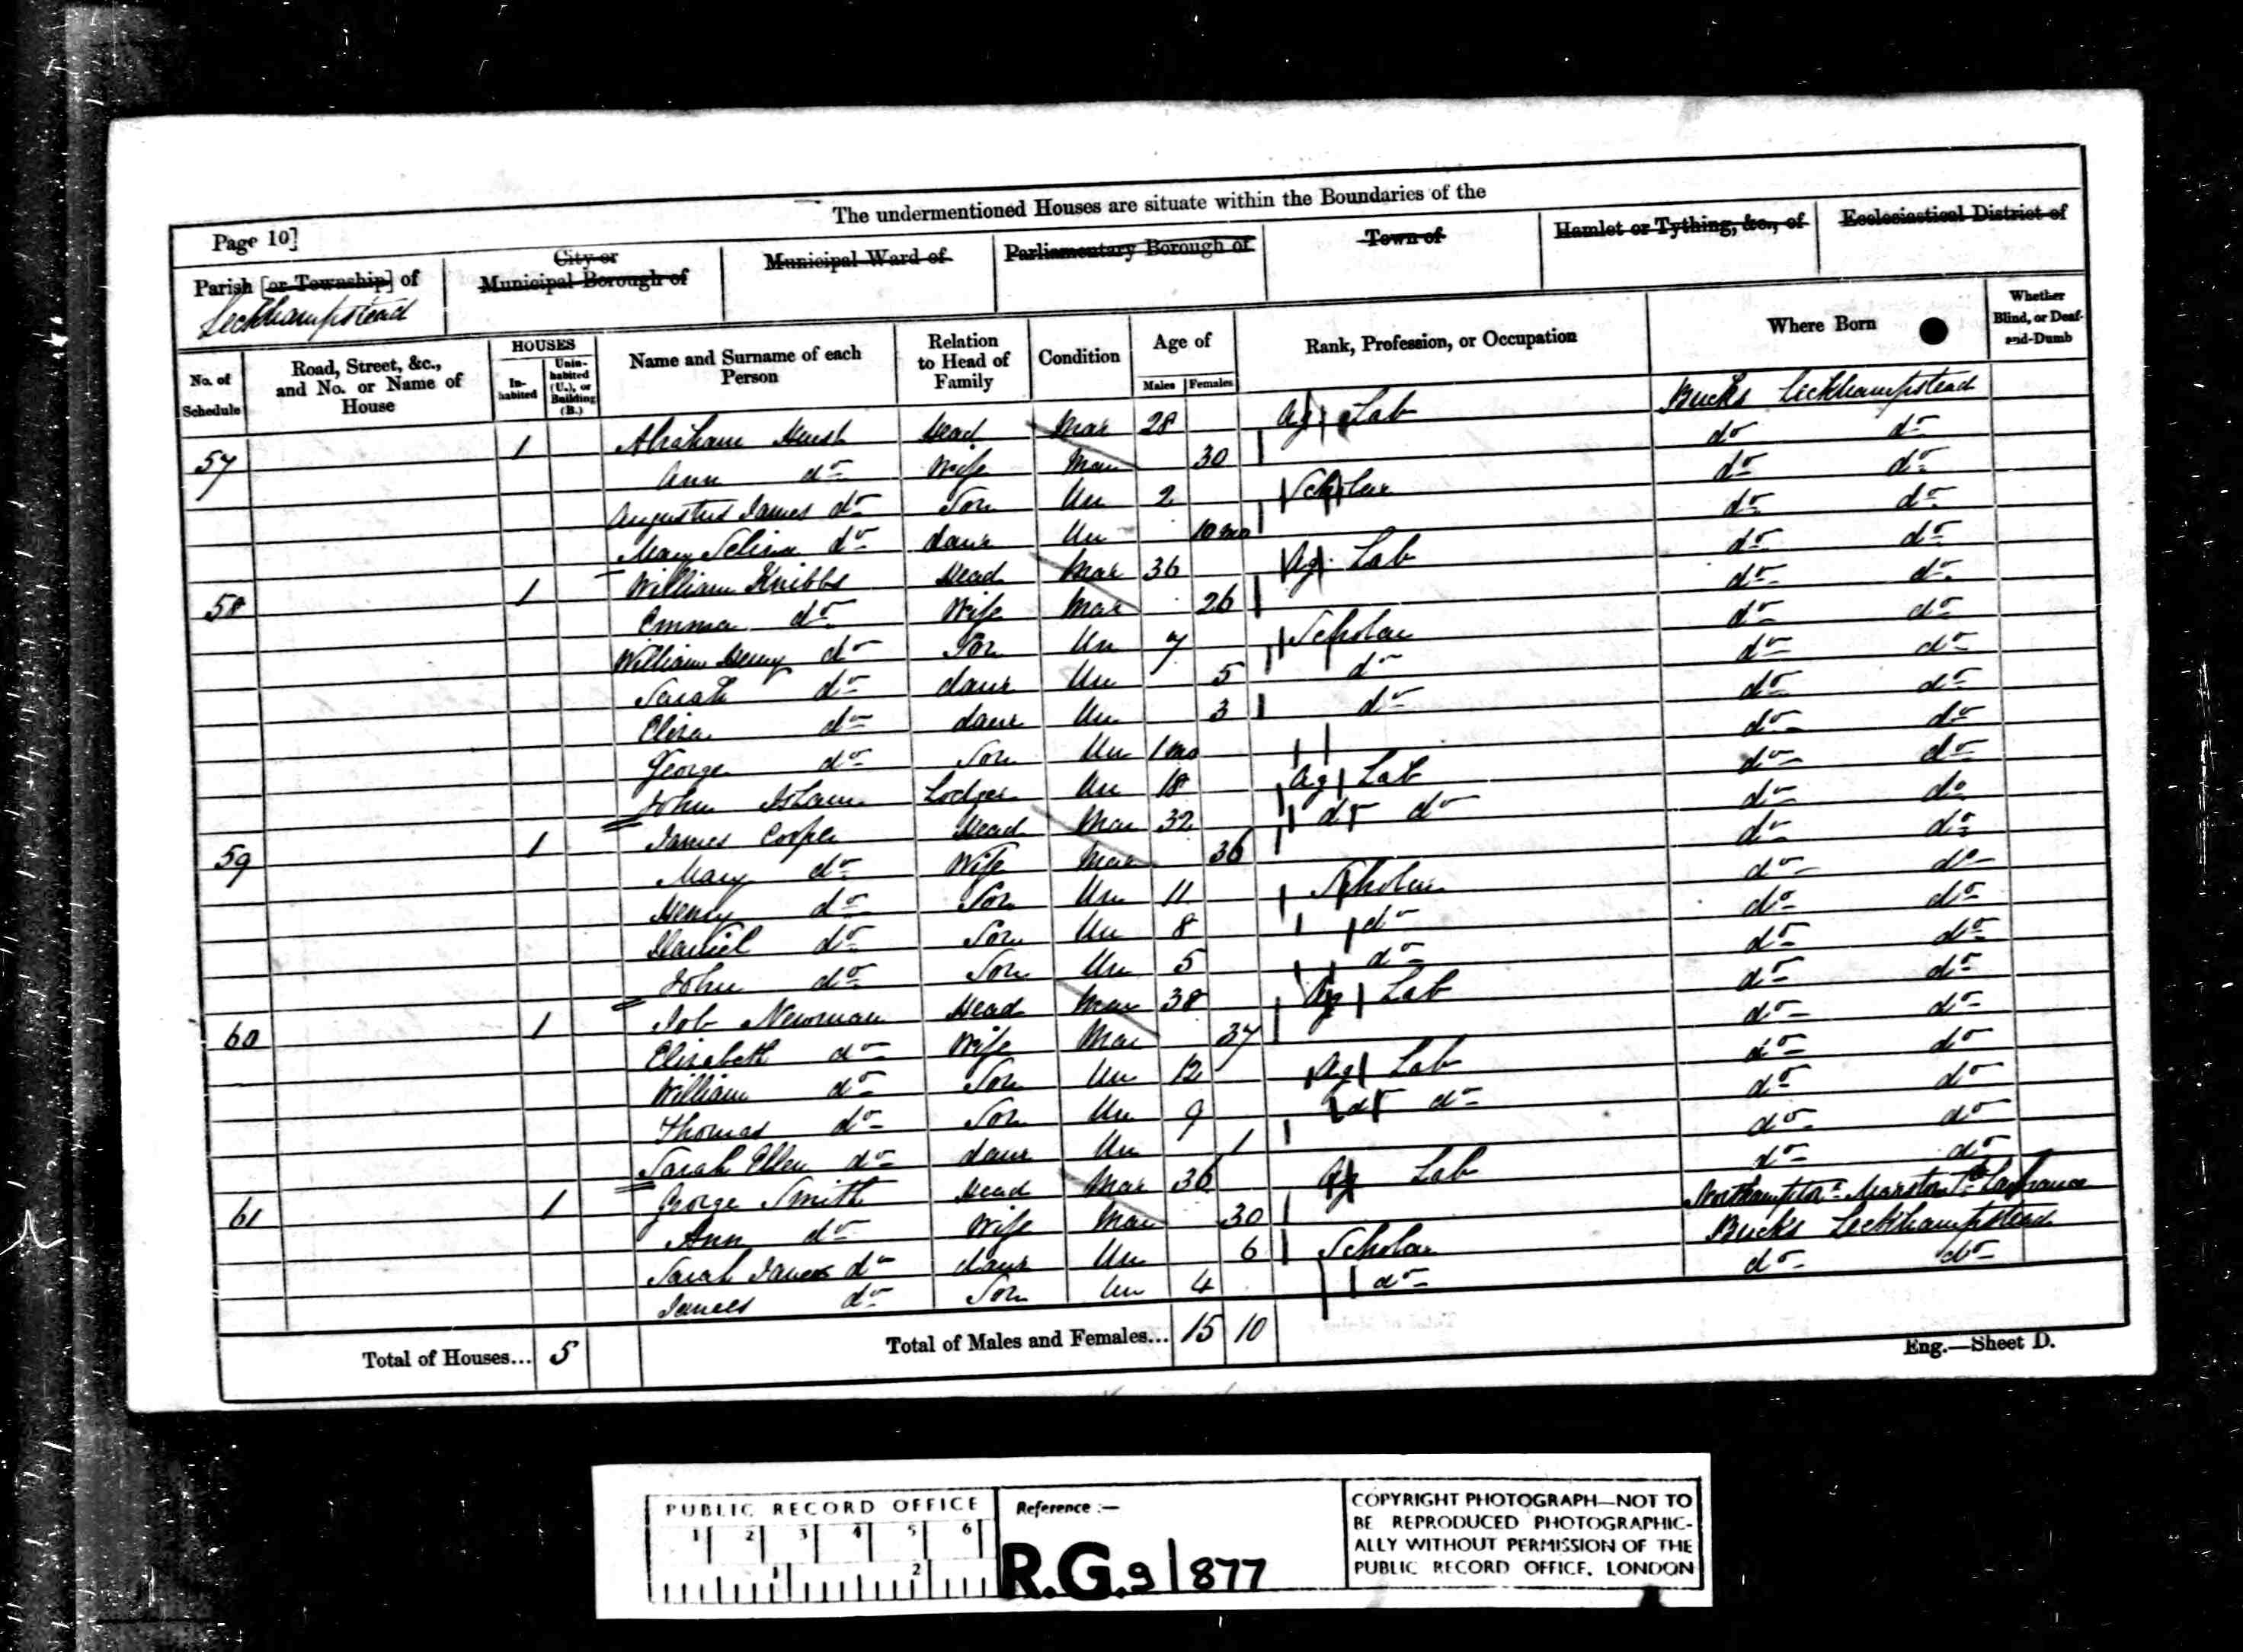 The undermentioned Houses are situate within the Boundaries of the
Page 10]
Parish [or Township] of
Leckhampstead
City or
Municipal Borough of
Municipal Ward of
Parliamentary Borough of
Town of
Hamlet or Tything, &c., of
Ecclesiastical District of
No. of Schedule
Road, Street, &c., and No. or Name of House
HOUSES
In-habited
Unin-habited (U.), or Building (B.)
Name and Surname of each Person
Relation to Head of Family
Condition
Age of
Males
Females
Rank, Profession, or Occupation
Where Born
Whether Blind, or Deaf-and-Dumb
57 1 Abraham Head Mar 28 Ag Lab Bucks Leckhampstead
Ann do Wife Mar 30 do do
Augustus James do Son Un 2 Scholar do do
Mary Selina do daur Un 10 mo do do
58 1 William Knibbs Head Mar 36 Ag Lab do do
Emma do Wife Mar 26 do do
William Henry do Son Un 7 Scholar do do
Sarah do daur Un 5 do do do
Eliza do daur Un 3 do do do
George do Son Un 1 mo do do
John Isham Lodger Un 18 Ag Lab do do
59 1 James Cooper Head Mar 32 do do do do
Mary do Wife Mar 36 do do
Henry do Son Un 11 Scholar do do
Daniel do Son Un 8 do do do
John do Son Un 5 do do do
60 1 Job Newman Head Mar 38 Ag Lab do do
Elizabeth do Wife Mar 37 do do
William do Son Un 12 Ag Lab do do
Thomas do Son Un 9 do do do do
Sarah Ellen do daur Un 1 do do
61 1 George Smith Head Mar 36 Ag Lab do do
Ann do Wife Mar 30 Northampton Marston St Lawrance
Sarah Jane do daur Un 6 Scholar Bucks Leckhampstead
James do Son Un 4 do do do
Total of Houses... 5
Total of Males and Females... 15 10
Eng.—Sheet D.
PUBLIC RECORD OFFICE
1 2 3 4 5 6
1 2
Reference :—
R.G. 9/877
COPYRIGHT PHOTOGRAPH—NOT TO
BE REPRODUCED PHOTOGRAPHIC-
ALLY WITHOUT PERMISSION OF THE
PUBLIC RECORD OFFICE, LONDON